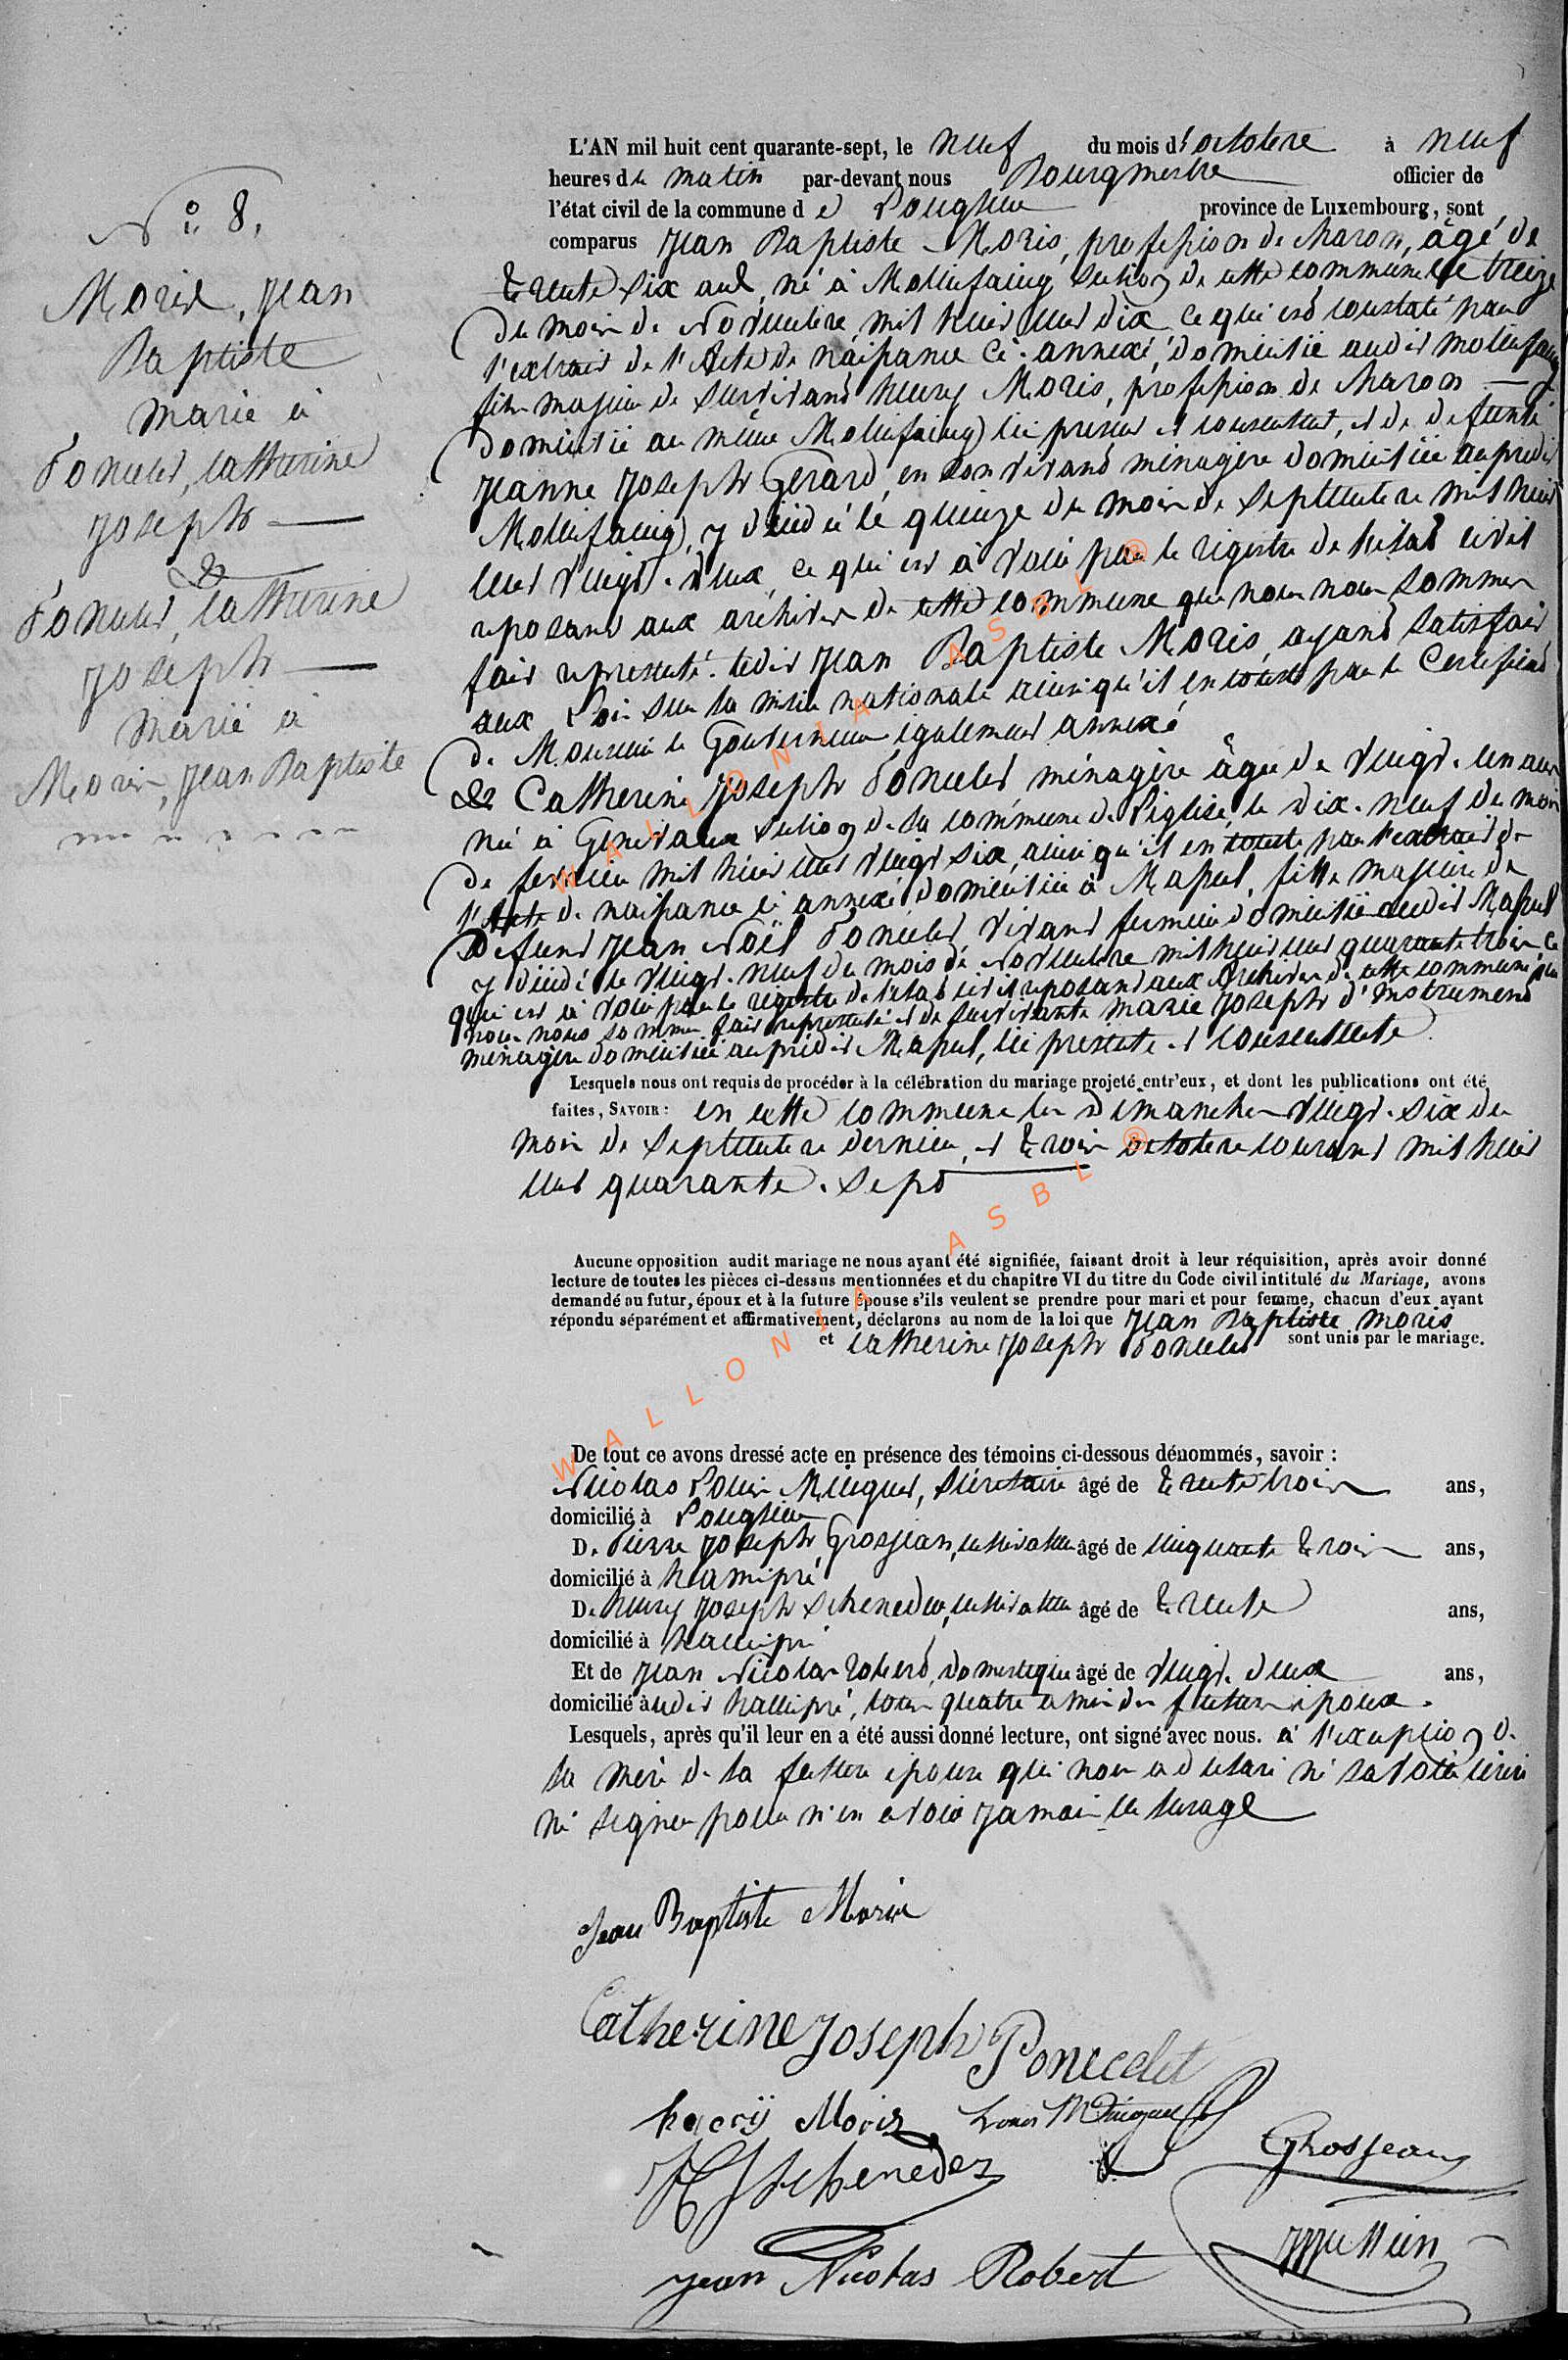 N.° 8.
Moris, Jean
Baptiste
marié à
Poncelet, Catherine
Joseph
&
Poncelet, Catherine
Joseph
marié à
Moris, Jean Baptiste
L'AN mil huit cent quarante-sept, le neuf du mois d'octobre à neuf
heures du matin par-devant nous Bourgmestre officier de
l'état civil de la commune de Longlier province de Luxembourg, sont
comparus Jean Baptiste Moris, profession de charon, âgé de
trente six ans, né à Mollifaing section de cette commune le treize
du mois de Novembre mil huit cent dix ce qui est constaté par
l'extrait de l'Acte de naissance ci-annexé, domicilié audit Mollifaing
fils majeur de survivant henry Moris, profession de charon
domicilié au même Mollifaing ici présent et consentant, et de defunte
Jeanne Joseph Gerard, en son vivant ménagère domiciliée au predit
Mollifaing, y décédé le quinze du mois de septembre mil huit
cent vingt-deux, ce qui est à voir par le régistre de l'etat civil
reposant aux archives de cette commune que nous nous sommes
fait representé. ledit Jean Baptiste Moris, ayant satisfait
aux Lois sur la milice nationale ainsi qu'il en conste par le Certificat
de Monsieur le Gouverneur également annexé
& Catherine Joseph Poncelet ménagère âgée de vingt-un ans
né à Gennevaux section de la commune de Léglise, le dix-neuf du mois
de fevrier mil huit cent vingt six, ainsi qu'il en conste par l'extrait de
l'Acte de naissance ci annexé domiciliée à Massul, fille majeure de
Defunt Jean Noël Poncelet, vivant fermier domicilié audit Massul
y décédé le vingt-neuf du mois de Novembre mil huit cent quarante trois, ce
qui est à voir par le régistre de l'etat civil reposant aux Archives de cette commune que
nous nous sommes fait representé et de survivante Marie Joseph d'Instrument
ménagère domiciliée au prédit Massul, ici présente et consentente
Lesquels nous ont requis de procéder à la célébration du mariage projeté entr'eux, et dont les publications ont été
faites, SAVOIR: en cette commune les Dimanches vingt-six du
mois de Septembre dernier, et trois octobre courant mil huit
cent quarante-sept
Aucune opposition audit mariage ne nous ayant été signifiée, faisant droit à leur réquisition, après avoir donné
lecture de toutes les pièces ci-dessus mentionnées et du chapitre VI du titre du Code civil intitulé du Mariage, avons
demandé au futur, époux et à la future épouse s'ils veulent se prendre pour mari et pour femme, chacun d'eux ayant
répondu séparément et affirmativement, déclarons au nom de la loi que Jean Baptiste Moris
et Catherine Joseph Poncelet sont unis par le mariage.
De tout ce avons dressé acte en présence des témoins ci-dessous dénommés, savoir :
Nicolas Louis Mecquet, Sécrétaire âgé de trente trois ans,
domicilié à Longlier
De Pierre Joseph Grosjean, cultivateur âgé de cinquante trois ans,
domicilié à hamipré
De henry Joseph Scheneder, cultivateur âgé de trente ans,
domicilié à hamipré
Et de Jean Nicolas Robert, domestique âgé de vingt-deux ans,
domicilié audit hamipré, tous quatre amis des futurs époux.
Lesquels, après qu'il leur en a été aussi donné lecture, ont signé avec nous. à l'exception de
la mère de la future épouse qui nous a déclaré ni savoir écrire
ni signer pour n'en avoir jamais eu l'usage
Jean Baptiste Moris
Catherine Joseph Poncelet
henrÿ Moris Louis
HJ Scheneder Grosjean
Jean Nicolas Robert
WALLONIA ASBL ®
WALLONIA ASBL ®